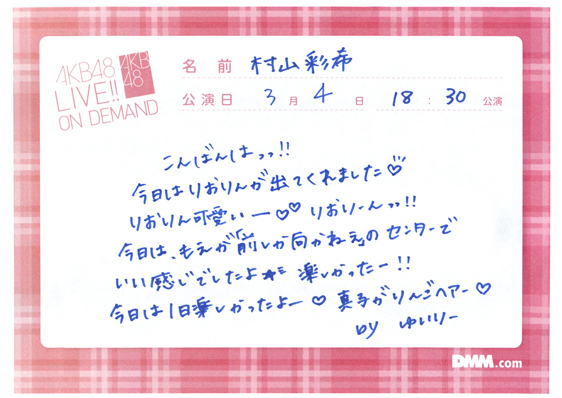 AKB48
LIVE!!
ON DEMAND
AKB
48
名前 村山彩希
公演日 3月4日 18:30公演
こんばんはッッ!!
今日はりおりんが出てくれました♡
りおりん可愛いー♡♡ りおりーんッッ!!
今日は、もえが前しか向かねえのセンターで
いい感じでしたよ 楽しかったー!!
今日は1日楽しかったよー♡ 真子がりんごヘアー♡
by ゆいりー
DMM.com